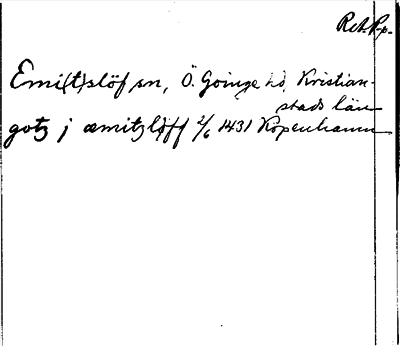 Rek. Rep.
Emi(t)slöf sn, Ö. Göinge hd, Kristian-
stads län
gotz j æmitzløff 2/6 1431 Köpenhamn